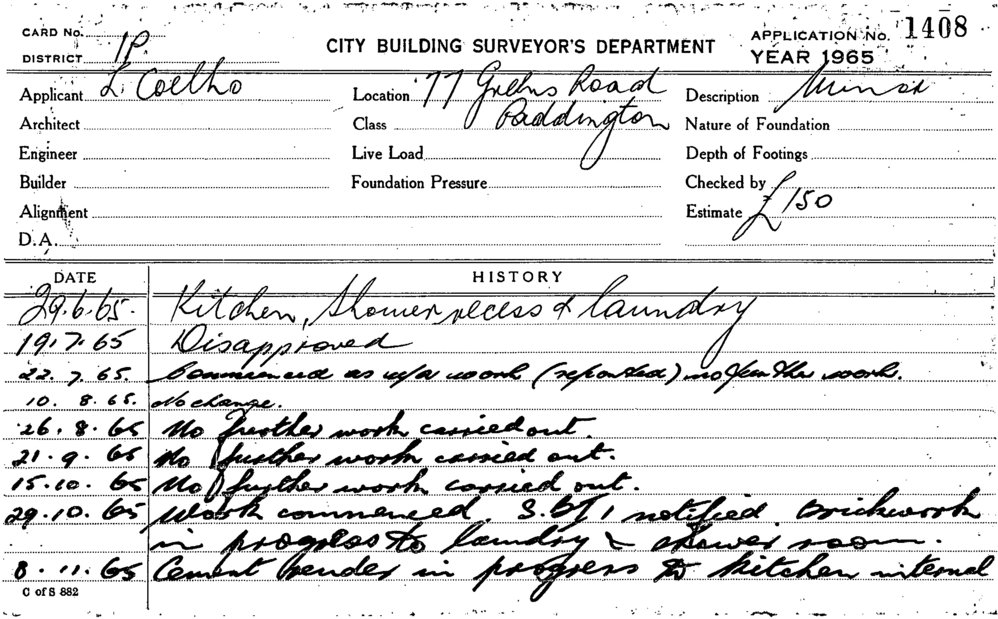 CARD No. IP.
DISTRICT
CITY BUILDING SURVEYOR'S DEPARTMENT
APPLICATION No. 1408
YEAR 1965
Applicant L Coelho
Location 77 Greens Road
Paddington
Description Minor
Architect
Class
Nature of Foundation
Engineer
Live Load
Depth of Footings
Builder
Foundation Pressure
Checked by
Alignment
Estimate £150
D.A.
DATE HISTORY
29.6.65. Kitchen, Shower recess & laundry
19.7.65 Disapproved
22.7.65. Commenced as u/a work (reported) no further work.
10.8.65. No change.
26.8.65 No further work carried out.
21.9.65 No further work carried out.
15.10.65 No further work carried out.
29.10.65 Work commenced. notified. Brickwork
in progress to laundry & shower room.
8.11.65 Cement render in progress to kitchen internal
C of S 882